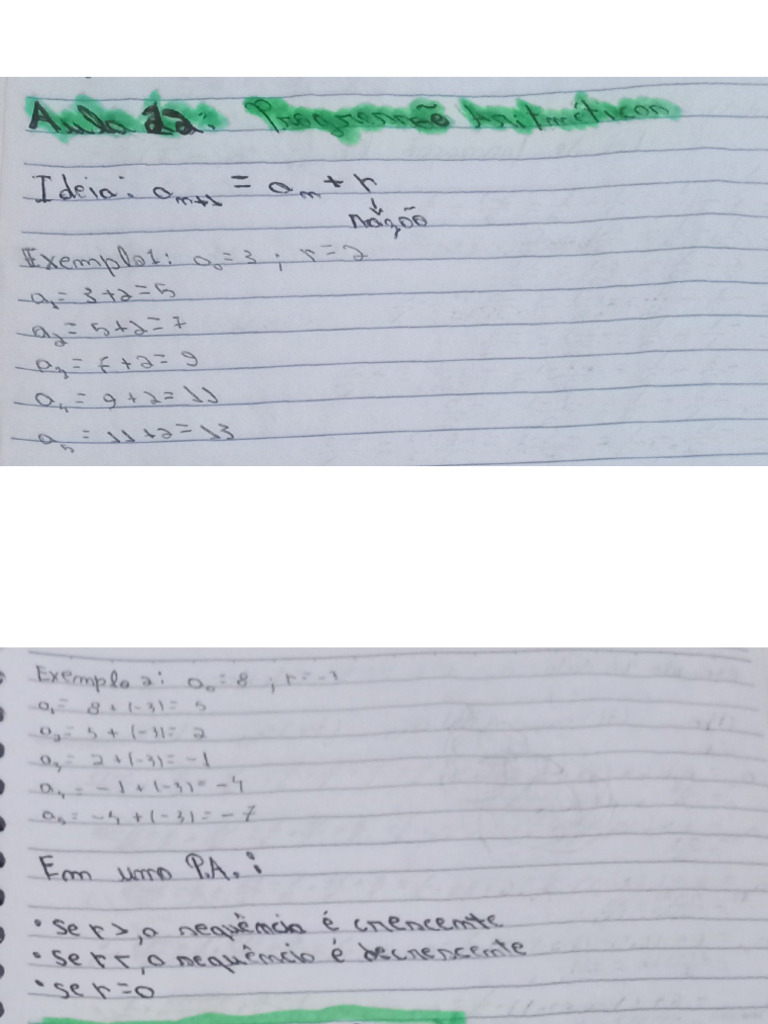 Aula 12: Progressão Aritméticas
Ideia: aₙ₊₁ = aₙ + r
↓
razão
Exemplo 1: a₀ = 3 ; r = 2
a₁ = 3+2 = 5
a₂ = 5+2 = 7
a₃ = 7+2 = 9
a₄ = 9+2 = 11
a₅ = 11+2 = 13
Exemplo 2: a₀ = 8 ; r = -3
a₁ = 8 + (-3) = 5
a₂ = 5 + (-3) = 2
a₃ = 2 + (-3) = -1
a₄ = -1 + (-3) = -4
a₅ = -4 + (-3) = -7
Em uma P.A.:
• se r >, a sequência é crescente
• se r <, a sequência é decrescente
• se r = 0